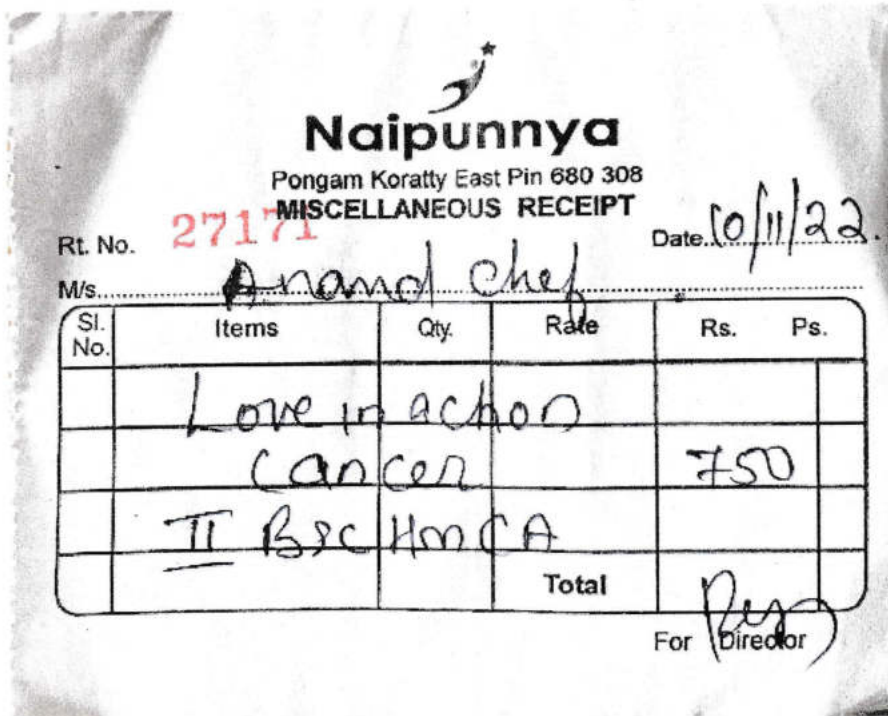 Naipunnya
Pongam Koratty East Pin 680 308
MISCELLANEOUS RECEIPT
Rt. No. 27171 Date 10/11/22
M/s. Anand Chef
Sl. No. Items Qty. Rate Rs. Ps.
Love in action
Cancer 750
II BSC HMCA
Total
For Director